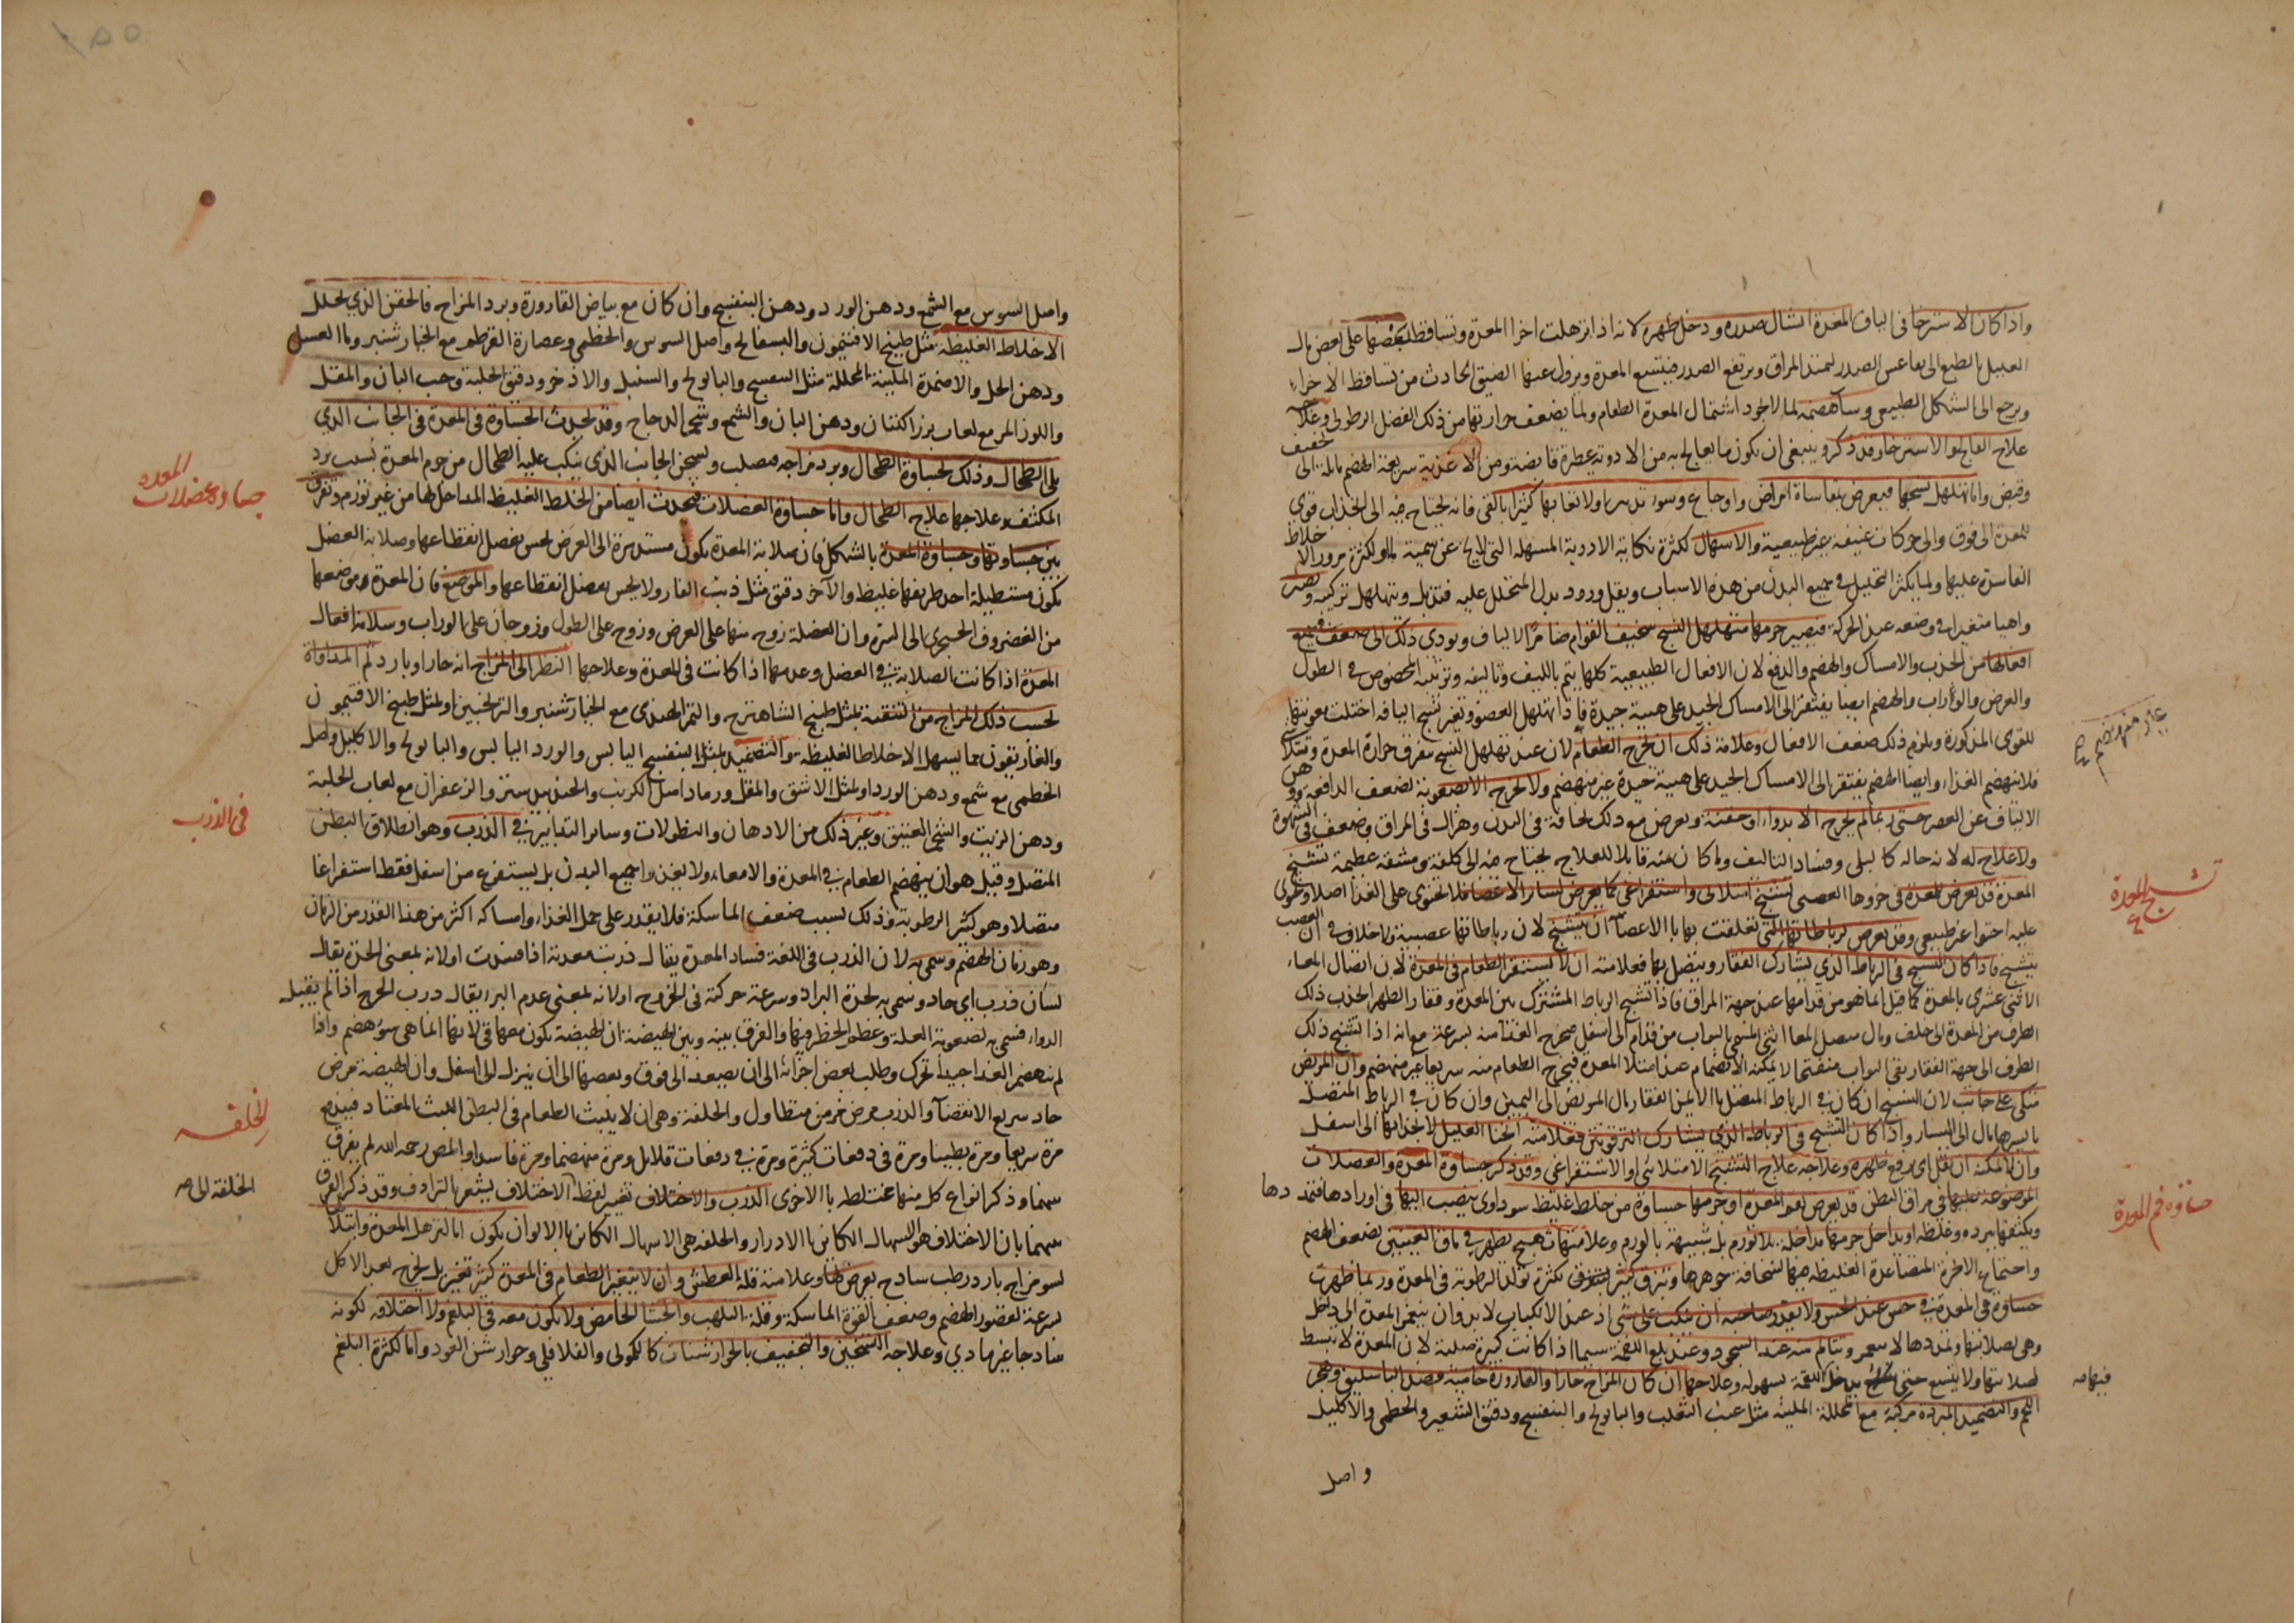 واذا كان الاسترخا فى الياف المعدة انشال صدره ودخل ظهره لانه اذا ترهلت اجزا المعدة وتساقط بعضها على بعض مال
العليل بالطبع الى تقاعس الصدر ليمتد المراق ويرتفع الصدر فيتسع المعدة ويزول عنها الضيق الحادث من تساقط الاجزاء
ويرجع الى الشكل الطبيعى وساء هضمه لما لا يجود اشتمال المعدة الطعام ولما يضعف حرارتها من ذلك الفضل الرطوبى وعلاجه
علاج الفالج والاسترخا وقد ذكر وينبغى ان يكون ما يعالج به من الادوية عطرة قابضة ومن الاغذية سريعة الهضم مايلة الى تجفيف
وقبض واما تهلهل نسجها فيعرض بمقاساة امراض واوجاع وسوء تدبير ولاتعابها كثيرا بالقى فانه يحتاج فيه الى انجذاب قوى
للمعدة الى فوق والى حركات عنيفة غير طبيعية والاسهال لكثرة نكاية الادوية المسهلة التى لا تخ عن سمية لها ولكثرة مرور الاخلاط
الفاسدة عليها ولما يكثر التحليل فى جميع البدن من هذه الاسباب ويقل ورود بدل المتحلل عليه فتذبل ويتهلهل تركيبه ويصير
واهيا متغيرا فى وضعه عند الحركة فيصير جرمها متهلهل النسج سخيف القوام ضامر الالياف ويودى ذلك الى ضعف جميع
افعالها من الجذب والامساك والهضم والدفع لان الافعال الطبيعية كلها يتم بالليف وتاليفه وتزيينه المخصوص فى الطول
والعرض والوراب والهضم ايضا يفتقر الى الامساك الجيد على هيئة جيدة فاذا تهلهل العضو وتغير نسج اليافه اختلت معونتها
للقوى المذكورة ويلزم ذلك ضعف الافعال وعلامة ذلك ان يخرج الطعام لان عند تهلهل النسج يتفرق حرارة المعدة ويتبدد
فلا ينهضم الغذاء وايضا الهضم يفتقر الى الامساك الجيد على هيئة جيدة غير منهضم ولا يخرج الا بصعوبة لضعف الدافعة ووهن
الالياف عن العصر حتى ربما لم يخرج الا بدواء او حقنة ويعرض مع ذلك نحافة فى البدن وهزال فى المراق وضعف فى الشهوة
ولا علاج له لانه حاله كالبلى وفساد التاليف وما كان منه قابلا للعلاج يحتاج فيه الى كلفة ومشقة عظيمة تشنج
المعدة قد يعرض للمعدة فى جزوها العصبى تشنج امتلائى واستفراغى كما يعرض لساير الاعضا فلا تحتوى على الغذا اصلا او تحتوى
عليه احتوا غير طبيعى وقد يعرض لرباطاتها التى تعلقت بها بالاعضا ان يتشنج لان رباطاتها عصبية ولا خلاف فى ان العصب
يتشنج فاذا كان التشنج فى الرباط الذى يشارك الفقار ويتصل بها فعلامته ان لا يستقر الطعام فى المعدة لان اتصال المعاء
الاثنى عشرى بالمعدة كما قيل انما هو من قدامها عند جهة المراق فاذا تشنج الرباط المشترك بين المعدة وفقار الظهر انجذب ذلك
الطرف من المعدة الى خلف ومال متصل المعا اثنى المسمى بالبواب من قدام الى اسفل فيخرج الغذا منه بسرعة مع انه اذا تشنج ذلك
الطرف الى جهة الفقار بقى البواب منفتحا لا يمكنه الانضمام عند امتلا المعدة فيخرج الطعام منه سريعا غير منهضم وان المريض
متكى على جانب لان التشنج ان كان فى الرباط المتصل بالايمن الفقار مال المريض الى اليمين وان كان فى الرباط المتصل
بايسرها مال الى اليسار واذا كان التشنج فى الرباط الذى يشارك الترقوتين فعلامته انحنا العليل لانجذابها الى اسفل
وان لا يمكنه ان يقل اى يرفع ظهره وعلاجه علاج التشنج الامتلائى او الاستفراغى وقد ذكر جساوة المعدة والعضلات
الموضوعة عليها فى مراق البطن قد يعرض لفم المعدة او جرمها جساوة من خلط غليظ سوداوى ينصب اليها فى اورادها فتمددها
ويكثفها ببرده وغلظه او يداخل جرمها مداخلة بلا تورم بل شبيهة بالورم وعلامتها تهبج يظهر فى ماق العينين لضعف الهضم
واحتمام الابخرة المتصاعدة الغليظة فيها لسخافة جوهرها وتبزق كثير لكثرة تولد الرطوبة فى المعدة وربما ظهرت
جساوة فى المعدة فى حس عند الجس ولا يقدر صاحبه ان ينكب على شى اذ عند الانكباب لا بد وان ينغمز المعدة الى داخل
وهى بصلابتها وتمددها لا ينغمز ويتالم منه عند السجود وعند بلع اللقمة سيما اذا كانت كبيرة صلبة لان المعدة لا تنبسط
لصلابتها ولا يتسع حتى يدخل اللقمة بسهوله وعلاجها ان كان المزاج حارا والقارورة حامية فصد الباسليق وهجر
اللحم والتضميد المبردة مركبة مع المحللة الملينة مثل عنب الثعلب والبابونج والبنفسج ودقيق الشعير والخطمى والاكليل
واصل
تشنج المعدة
جساوة فم المعدة
فيها صه
واصل السوس مع الشمع ودهن الورد ودهن البنفسج وان كان مع بياض القارورة وبرد المزاج فالحقن الذى يحلل
الاخلاط الغليظة مثل طبيخ الافتيمون والبسفايج واصل السوس والخطمى وعصارة القرطم مع الخيار شنبر وماء العسل
ودهن الحل والاضمدة الملينة المحللة مثل البنفسج والبابونج والسنبل والاذخر ودقيق الحلبة وحب البان والمقل
واللوز المر مع لعاب بزر الكتان ودهن البان والشمع وشحم الدجاج وقد يحدث الجساوة فى المعدة فى الجانب الذى
يلى الطحال وذلك لجساوة الطحال وبرد مزاجه فيصلب ويسخن الجانب الذى ينكب عليه الطحال من جرم المعدة بسبب برد
المكثف وعلاجها علاج الطحال واما جساوة العضلات فيحدث ايضا من الخلط الغليظ المداخل لها من غير تورم ويفرق
بين جساوتها وجساوة المعدة بالشكل فان صلابة المعدة يكون مستديرة الى العرض يحس بفصل انقطاعها وصلابة العضل
يكون مستطيلة احد طرفيها غليظ والآخر دقيق مثل ذنب الفار ولا يحس بفصل انقطاعها والموضع فان المعدة موضعها
من الغضروف الحنجرى الى السرة وان العضلة زوج منها على العرض وزوج على الطول وزوجان على الوراب وسلامة افعال
المعدة اذا كانت الصلابة فى العضل وعدمها اذا كانت فى المعدة وعلاجها النظر الى المزاج انه حار او بارد ثم المداواة
بحسب ذلك المزاج من التنقية بمثل طبيخ الشاهترج والتمر الهندى مع الخيار شنبر والترنجبين او بمثل طبيخ الافتيمون
والغاريقون مما يسهل الاخلاط الغليظة والتضميد بمثل البنفسج اليابس والورد اليابس والبابونج والاكليل واصل
الخطمى مع شمع ودهن الورد او بمثل الاشق والمقل ورماد اصل الكرنب والجندبيدستر والزعفران مع لعاب الحلبة
ودهن الزيت والشحم العتيق وغير ذلك من الادهان والنطولات وساير التدابير فى الذرب وهو انطلاق البطن
المتصل وقيل هو ان ينهضم الطعام فى المعدة والامعاء ولا يغذو جميع البدن بل يستفرغ من اسفل فقط استفراغا
متصلا وهو كثير الرطوبة وذلك بسبب ضعف الماسكة فلا يقدر على حمل الغذاء وامساكه اكثر من هذا القدر من الزمان
وهو زمان الهضم وسمى به لان الذرب فى اللغة فساد المعدة يقال ذربت معدته اذا فسدت او لانه بمعنى الحدة يقال
لسان ذرب اى حاد وسمى به لحدة البراز وسرعة حركته فى الخروج او لانه بمعنى عدم البرء يقال ذرب الجرح اذا لم يقبل
الدواء فسمى به لصعوبة العلة وعظم الخطر فيها والفرق بينه وبين الهيضة ان الهيضة يكون معها قى لانها انما هى سوء هضم واذا
لم ينهضم الغذا جيدا تحرك وطلب بعض اجزائه الى ان يصعد الى فوق وبعضها الى ان ينزل الى اسفل وان الهيضة مرض
حاد سريع الانقضآء والذرب مرض مزمن متطاول والخلفة وهى ان لا يلبث الطعام فى البطن اللبث المعتاد فيندفع
مرة سريعا ومرة بطيئا ومرة فى دفعات كثيرة ومرة فى دفعات قلايل ومرة منهضما ومرة فاسدا والمص رحمه الله لم يفرق
بينهما وذكر انواع كل منها مختلطة بالاخرى الذرب والاختلاف تفسير لفظ الاختلاف يشعر بالترادف وقد ذكر الفرق
بينهما بان الاختلاف هو الاسهال الكائن بالادوار والخلفة هى الاسهال الكائن بالالوان يكون اما لترهل المعدة وابتلا
لسو مزاج بارد رطب ساذج يعرض لها وعلامته قلة العطش وان لا يتغير الطعام فى المعدة كثير تغير بل يخرج بعد الاكل
بسرعة لقصور الهضم وضعف القوة الماسكة وقلة التلهب والجشا الحامض ولا يكون معه فى البلغم ولا اختلافه لكونه
ساذجا غير مادى وعلاجه التسخين والتجفيف بالجوارشنات كالكمونى والفلافلى وجوارشن العود واما لكثرة البلغم
جساوة عضلات المعده
فى الذرب
الخلفه
الخلفة الى صه
١٥٥